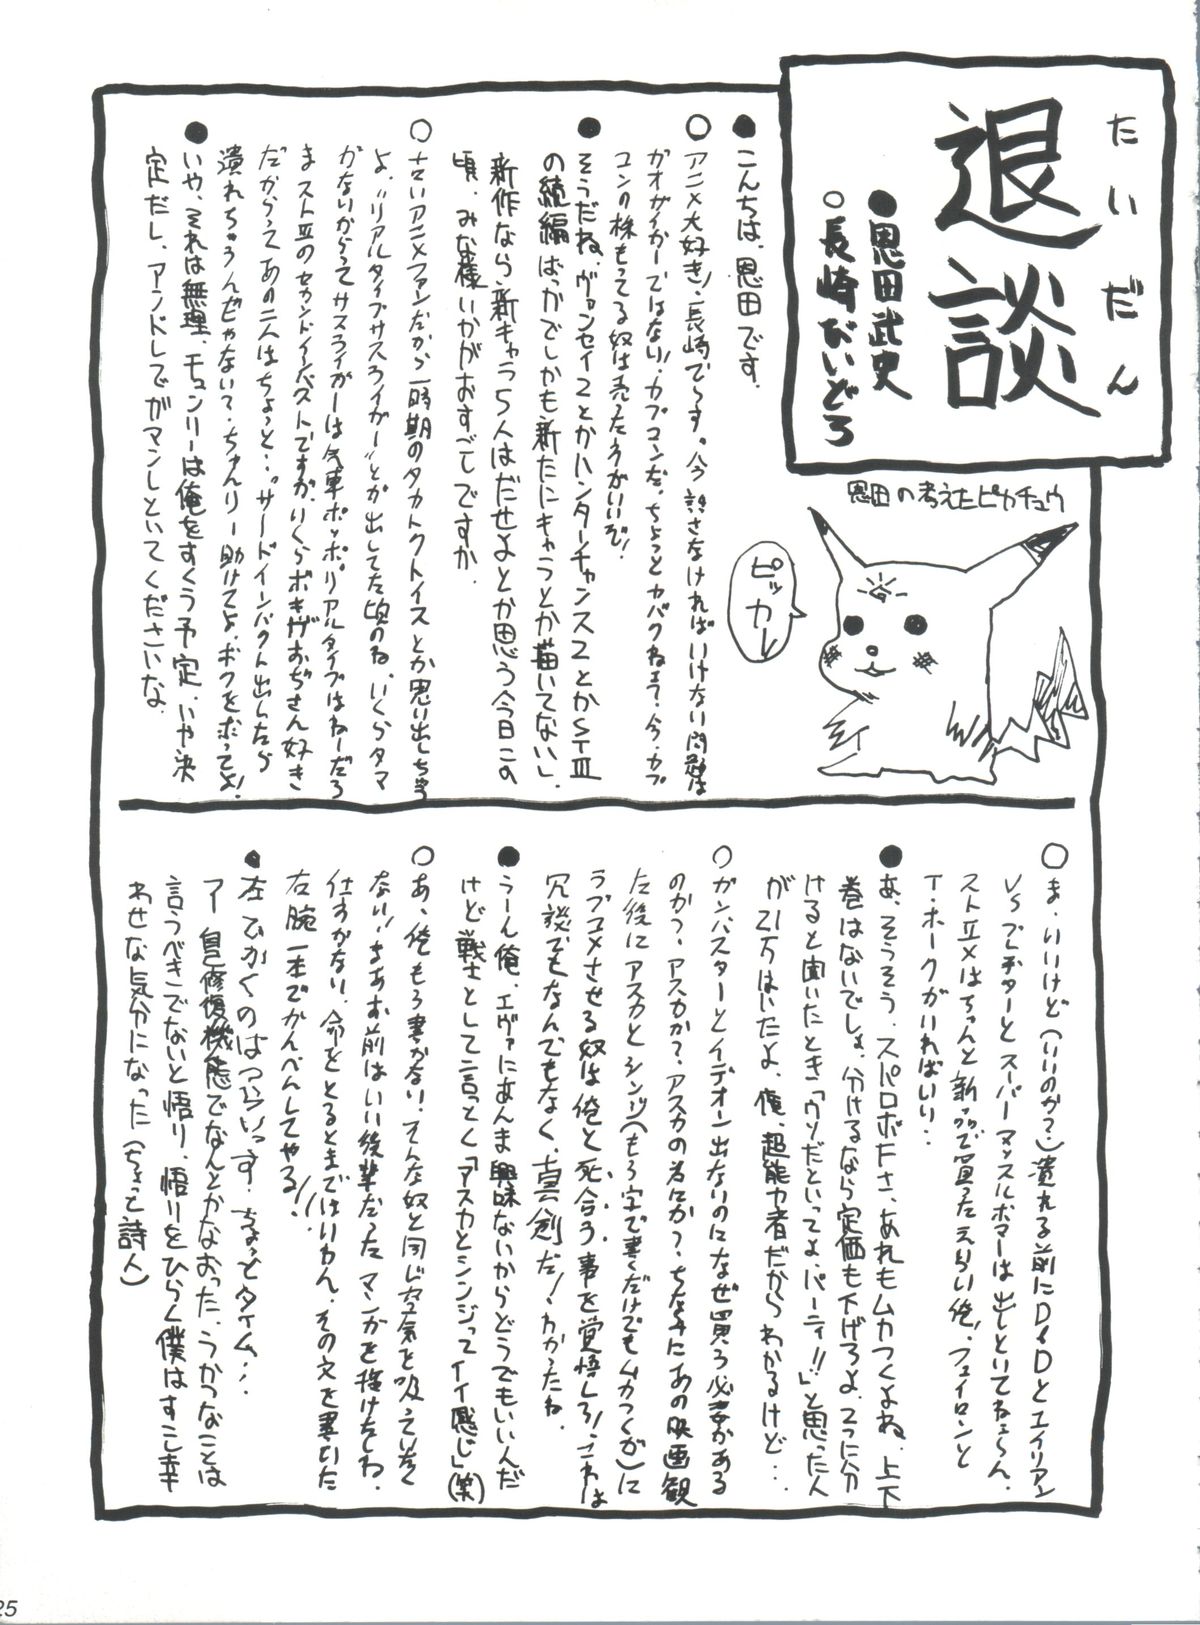 たいだん
退談
●恩田武史
○長崎びいどろ
恩田の考えたピカチュウ
ピッカー
●こんちは、恩田です。
○アニメ大好き!長崎でーす。今許さなければいけない問題は
ガオガイガーではない!カプコンだ。ちょっとカバクねェ?今・カプ
コンの株もってる奴は売った方がいいぞ!
●そうだね、ヴァンセイ2とかハンターチャンス2とかSTⅢ
の続編ばっかでしかも新たにキャラとか描いてない。
新作なら新キャラ5人はだせよとか思う今日この
頃、みな様いかがおすごしですか。
○古いアニメファンだから一時期のタカトクトイスとか思い出しちまう
よ、"リアルタイプサスライガー"とか出してた頃のね、いくらタマ
がないからってサスライガーは汽車ポッポ。リアルタイプはねーだろ
まストⅢのセカンドインパクトですが、いくらボキがおぢさん好き
だからってあの二人はちょっと…"サードインパクト出したら
潰れちゃうんぢゃない?・ちゅんリー助けてよ、ボクをホってよ!
●いや、それは無理、モュンリーは俺をすくう予定、いや決
定だし、アンドレでガマンしといてくださいな。
○ま・いいけど(いいのか?)潰れる前にD&Dとエイリアン
VSプレデターとスーパーマッスルボマーは出しといてねェ〜ん、
ストⅡXはちゃんと新品で買ったえらい俺!フェイロンと
T・ホークがいればいい…
●あ、そうそう、スパロボFさ、あれもムカつくよね、上下
巻はないでしょ、分けるなら定価も下げろよ、2つに分
けると聞いたとき「ウソだといってよ・バーディ!!」と思った人
が21万はいたよ、俺、超能力者だからわかるけど…
○ガンバスターとイデオン出ないのになぜ買う必要がある
のかっ、アスカか?アスカの為にか?ちなみにあの映画観
た後にアスカとシンジ(もう字で書くだけでもムカつくが)に
ラブコメさせる奴は俺と死合う事を覚悟しろ!これは
冗談でもなんでもなく、真剣だ!わかったね。
●うーん俺、エヴァにあんま興味ないからどうでもいいんだ
けど戦士として言っとく「アスカとシンジってイイ感じ」(笑)
○あ、俺もう書かない、そんな奴と同じ空気を吸っていたく
ない!まあお前はいい後輩だったマンガを描けたしね
仕方がない、命をとるとまではいわん、その文を書いた
右腕一本でかんべんしてやる!!
●左でかくのはつらいっす、ちょっとタイム…
アー自修復機能でなんとかなおった、うかつなことは
言うべきでないと悟り、悟りをひらく僕はすこし幸
わせな気分になった(ちょっと詩人)
25